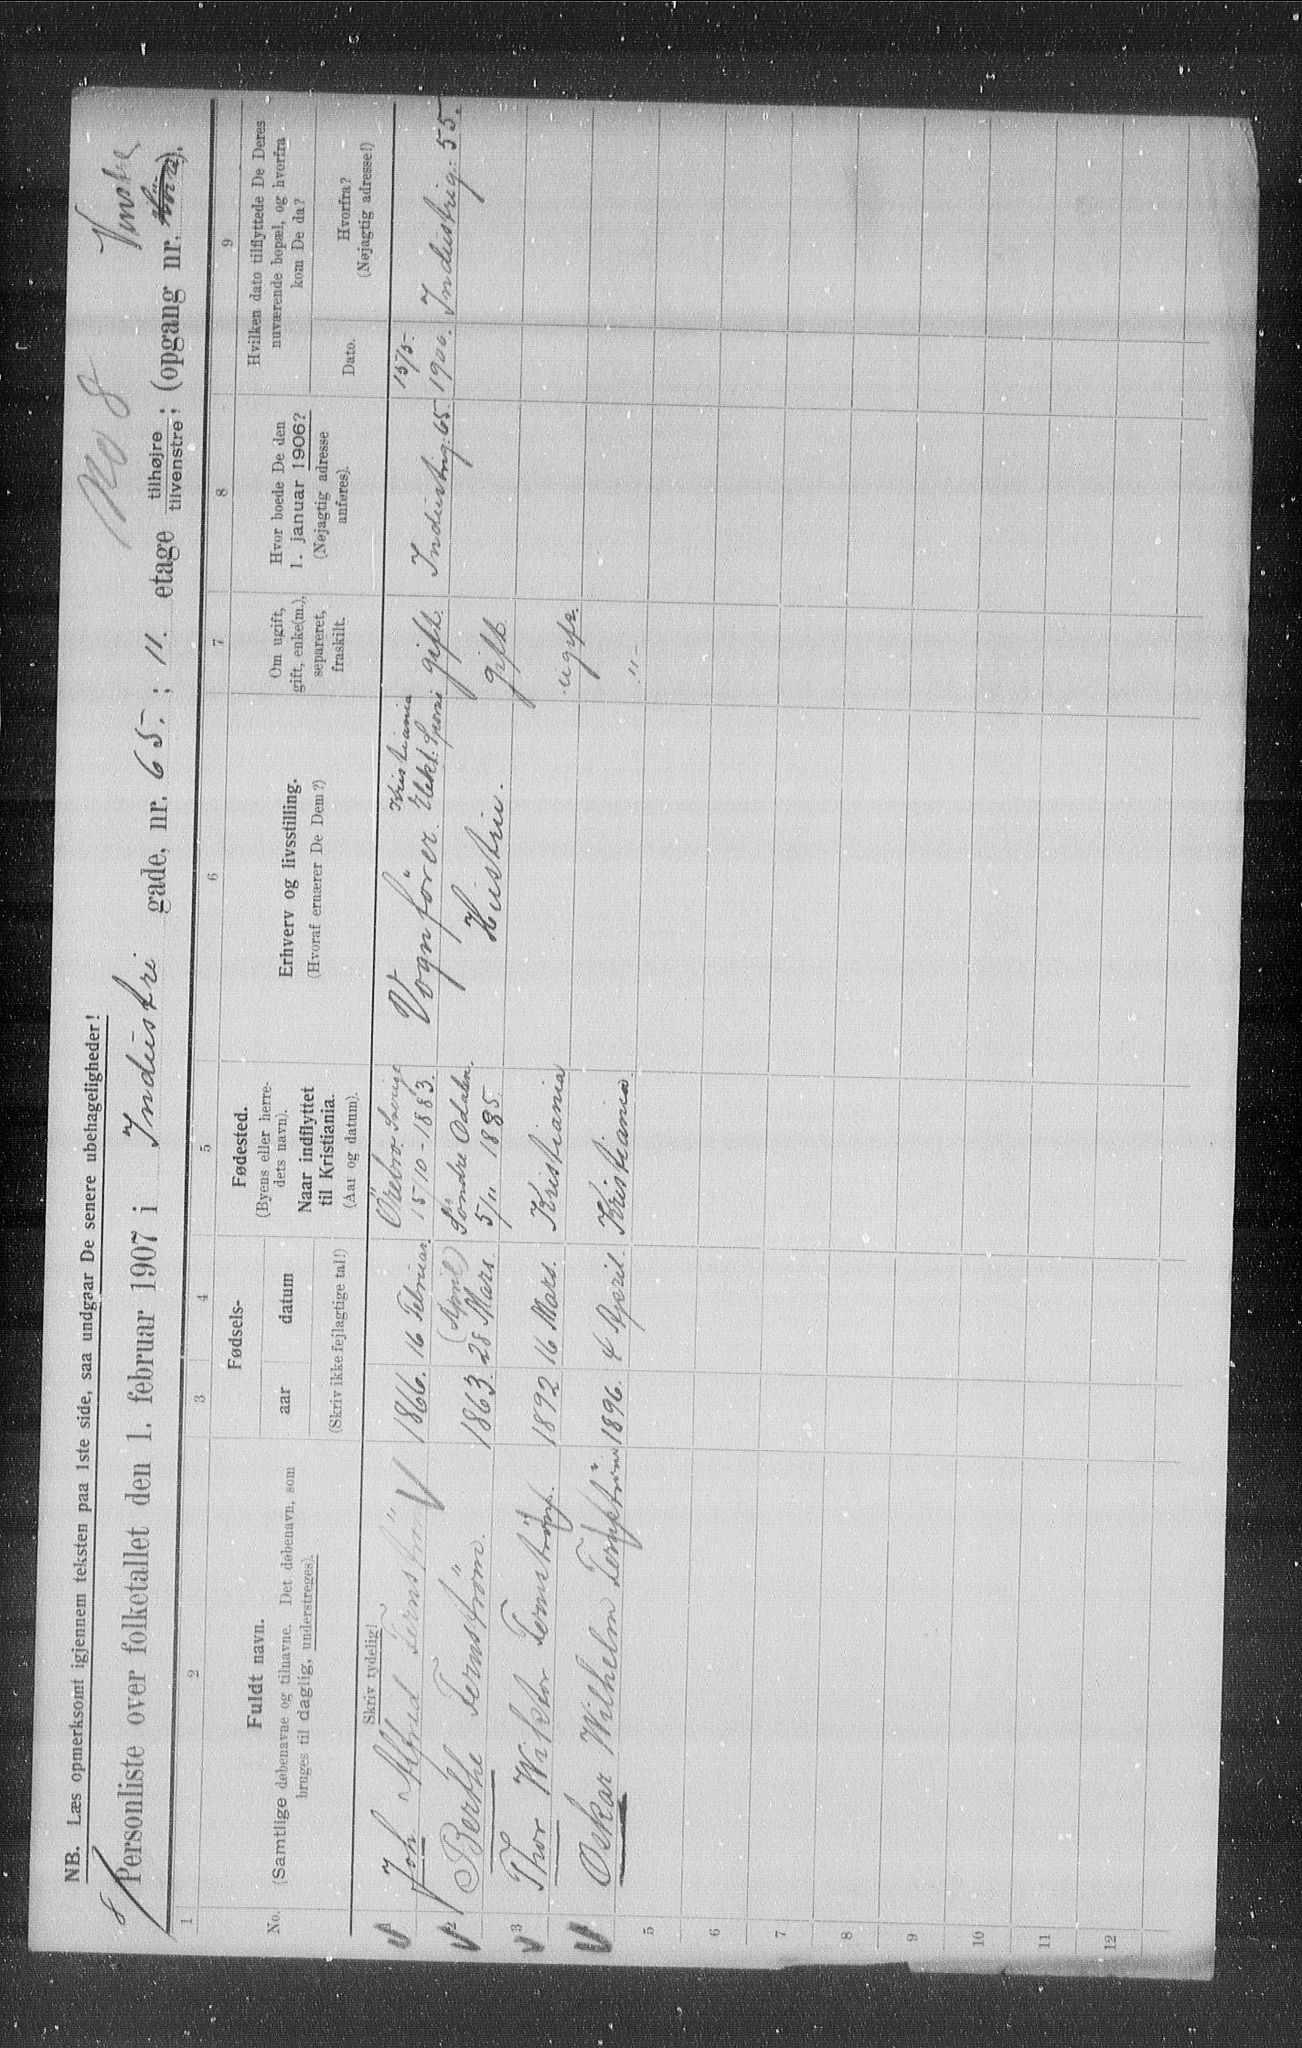 NB. Læs opmerksomt igjennem teksten paa 1ste side, saa undgaar De senere ubehageligheder!
No 8
Vinstre
8
Personliste over folketallet den 1. februar 1907 i Industri gade, nr. 65. ; 11. etage tilhøjre tilvenstre; (opgang nr. ).
1 2 3 4 5 6 7 8 9
No.
Fuldt navn.
(Samtlige døbenavne og tilnavne. Det døbenavn, som
bruges til daglig, understreges).
Skriv tydelig!
Fødsels-
aar datum
(Skriv ikke fejlagtige tal!)
Fødested.
(Byens eller herre-
dets navn).
Naar indflyttet
til Kristiania.
(Aar og datum).
Erhverv og livsstilling.
(Hvoraf ernærer De Dem?)
Om ugift,
gift, enke(m.),
separeret,
fraskilt.
Hvor boede De den
1. januar 1906?
(Nøjagtig adresse
anføres).
Hvilken dato tilflyttede De Deres
nuværende bopæl, og hvorfra
kom De da?
Dato.
Hvorfra?
(Nøjagtig adresse!)
1 Joh Alfred Ternström 1866. 16 Februar. Örebro Sverige 15/10-1883. Vognförer Kristiania Elekt. Sporvei gift. Industrig. 65. 15/5- 1900. Industrig. 55.
2 Berthe Ternström. 1863. 28 Mars. (April) Söndre Odalen. 5/11 1885. Hustru. gift.
3 Thor Wiktor Ternström. 1892 16 Mars. Kristiania ugift.
Oskar Wilhelm Ternström 1896. 4 April. Kristiania. -"-
5
6
7
8
9
10
11
12